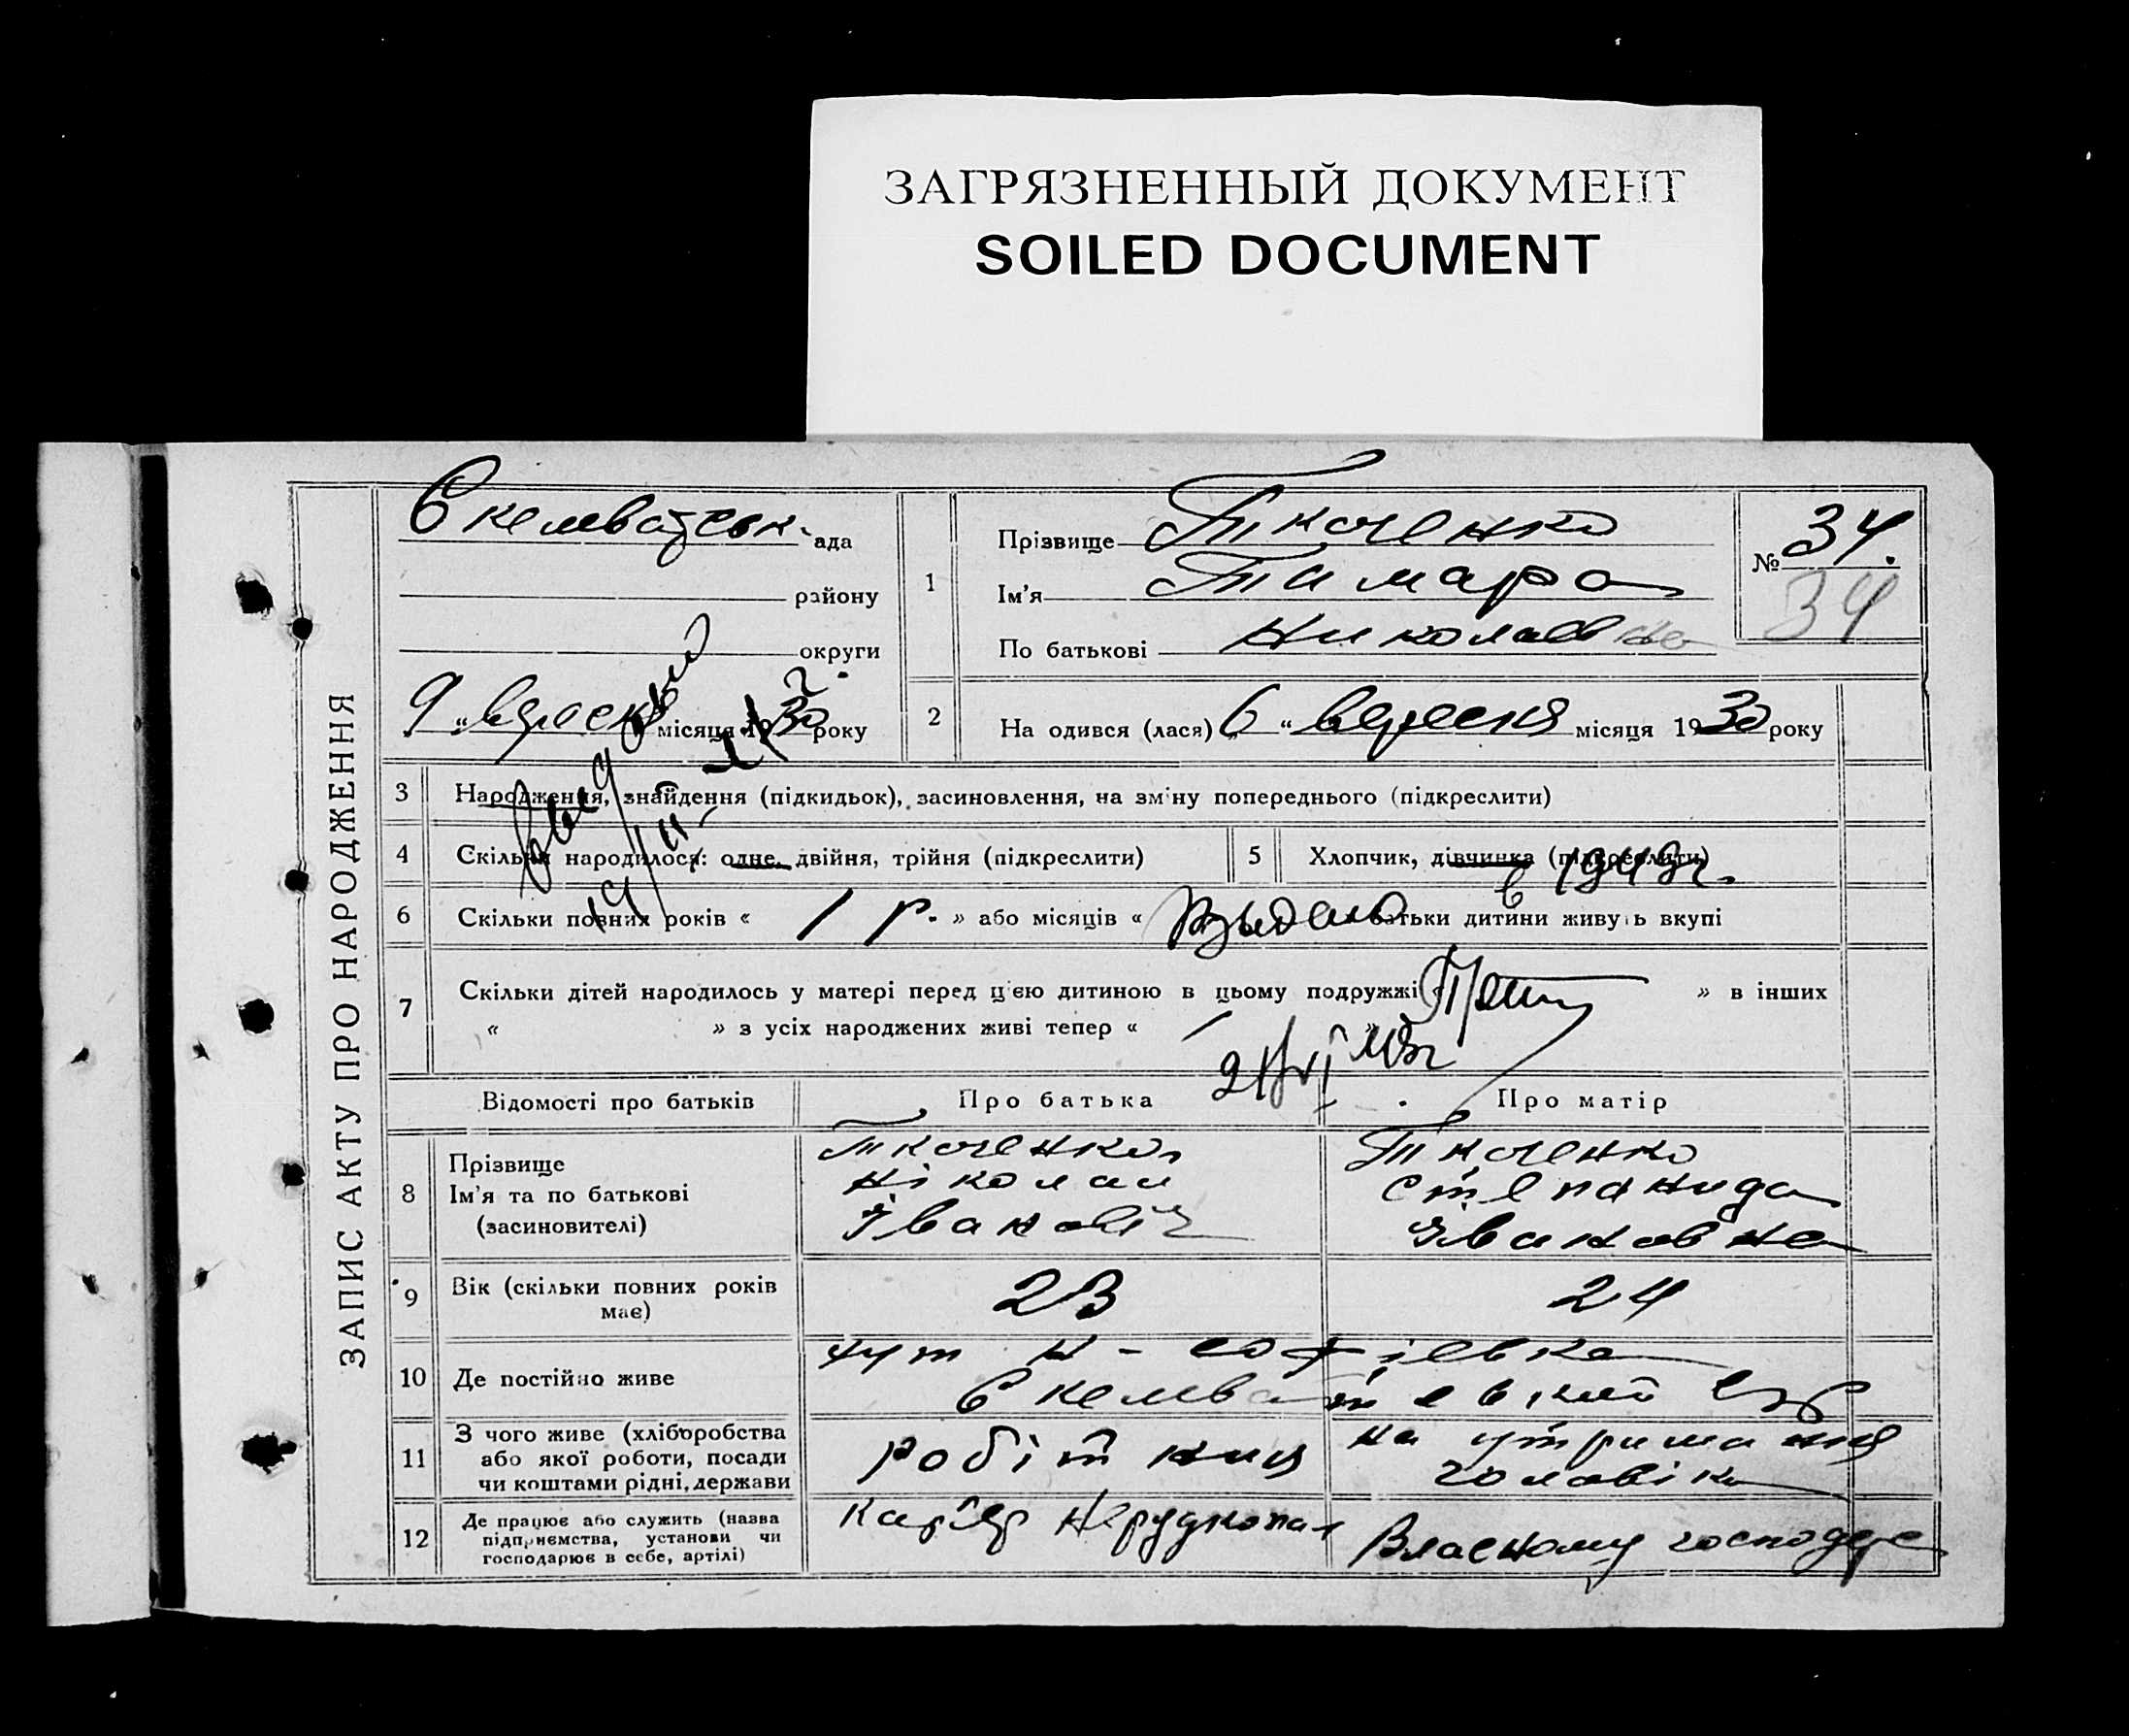 ЗАГРЯЗНЕННЫЙ ДОКУМЕНТ
SOILED DOCUMENT
ЗАПИС АКТУ ПРО НАРОДЖЕННЯ
ада
району
округи
9 „ вересня місяця 1930 року
1
Прізвище Ткаченко
Ім'я Тамара
По батькові Николаевна
№ 34.
34
2 На одився (лася) „ 6 “ вересня місяця 1930 року
3 Народження, знайдення (підкидьок), засиновлення, на зміну попереднього (підкреслити)
4 Скільки народилося: одне, двійня, трійня (підкреслити)
5 Хлопчик, дівчинка (підкреслити)
в 1943г.
6 Скільки повних років « 1 р. » або місяців « батьки дитини живуть вкупі
7 Скільки дітей народилось у матері перед цією дитиною в цьому подружжі « » в інших
« » з усіх народжених живі тепер « /
Відомості про батьків Про батька Про матір
8 Прізвище
Ім'я та по батькові
(засиновителі)
Ткаченко
Ніколай
Іванович
Ткаченко
Степанида
Івановна
9 Вік (скільки повних років має)
23
24
10 Де постійно живе
хут Н-Софіевка
11 З чого живе (хліборобства
або якої роботи, посади
чи коштами рідні, держави
робітниц
на утримания
чоловіка
12 Де працює або служить (назва
підприємства, установи чи
господарює в себе, артілі)
Карʼєр
Власному господар